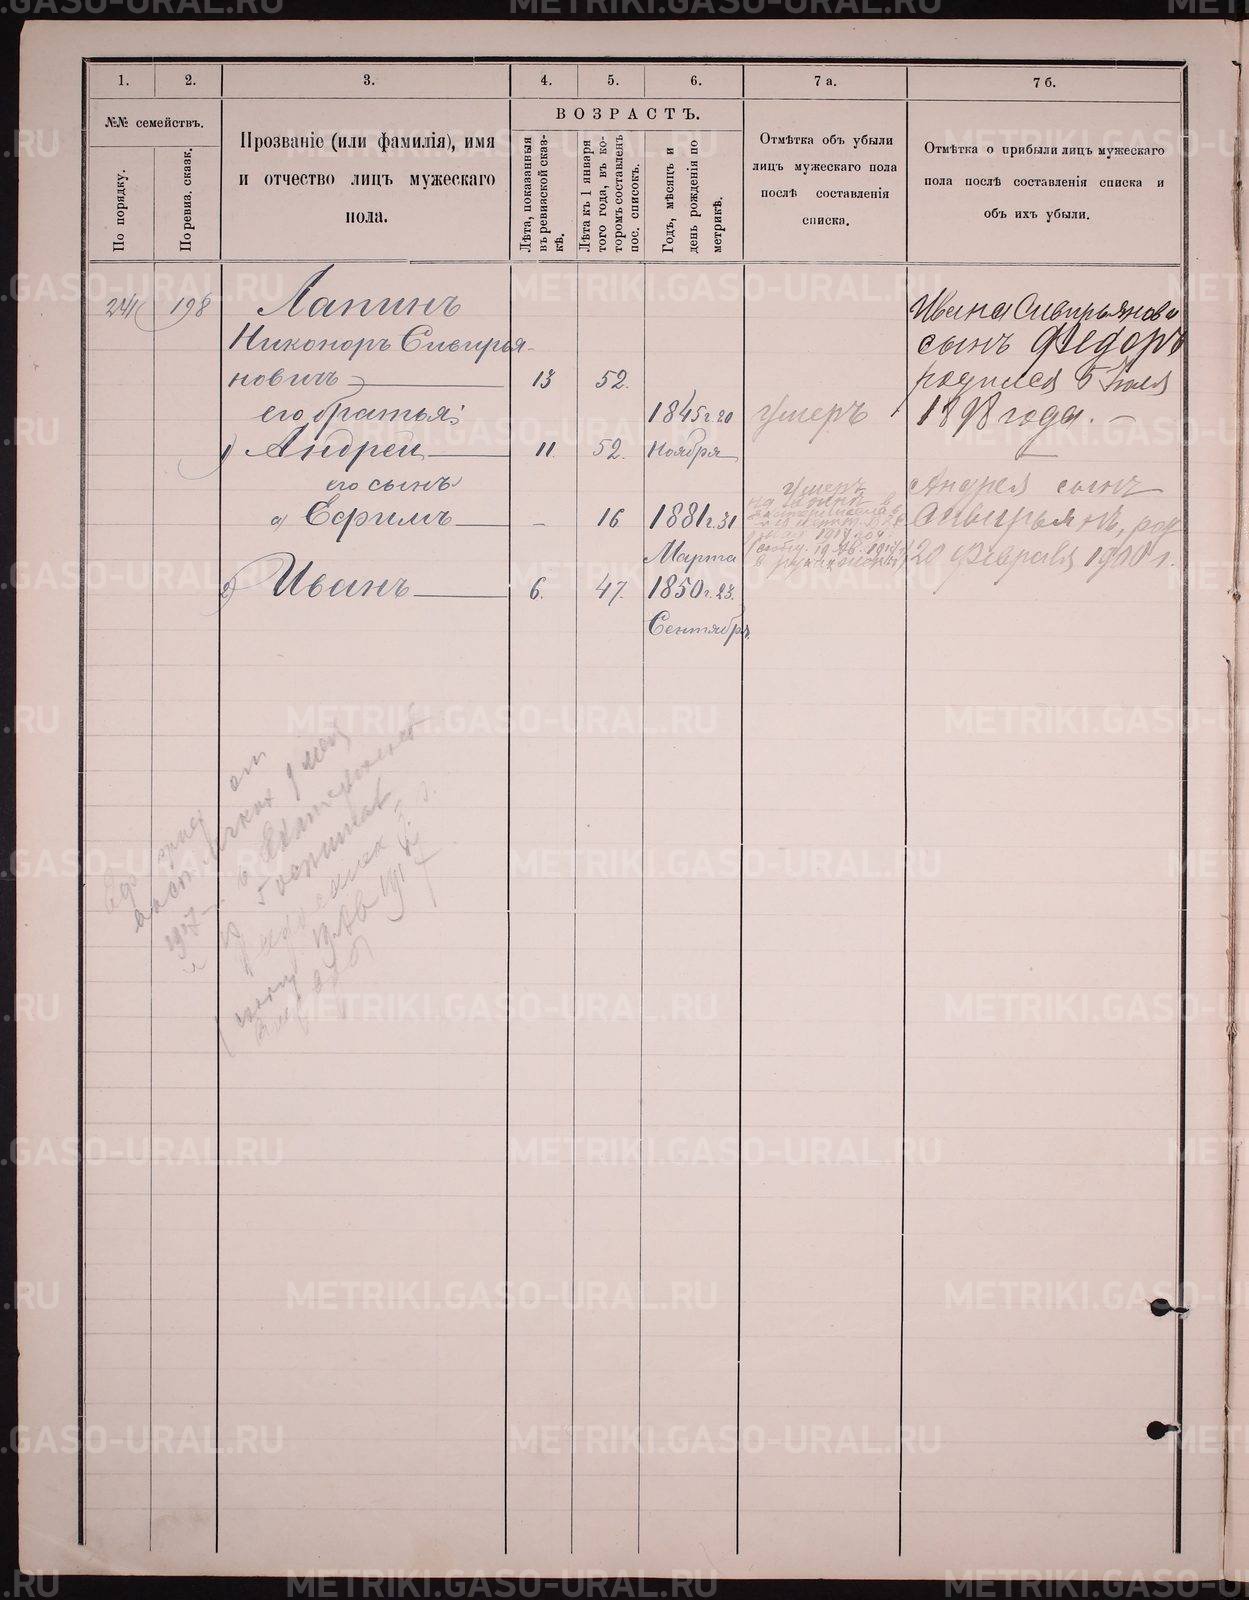 1.
2.
3.
4.
5.
6.
7 а.
7 б.
№№ семействъ.
По порядку.
По ревиз. сказк.
Прозваніе (или фамилія), имя
и отчество лицъ мужескаго
пола.
ВОЗРАСТЪ.
Лѣта, показанныя
въ ревизской сказ-
кѣ.
Лѣта къ 1 января
того года, въ ко-
торомъ составленъ
пос. списокъ.
Годъ, мѣсяцъ и
день рожденія по
метрикѣ.
Отмѣтка объ убыли
лицъ мужескаго пола
послѣ составленія
списка.
Отмѣтка о прибыли лицъ мужескаго
пола послѣ составленія списка и
объ ихъ убыли.
241 198 Лапинъ
Никоноръ Сивирья-
новичъ 13 52.
его братья:
1) Андрей 11 52. 1845 г. 20 Ноября умеръ
его сынъ
а) Ефимъ - 16 1881 г. 31 Марта
умеръ
на войнѣ в
1917
2) Иванъ 6. 47. 1850 г. 23. Сентябрь
Ивана Сивирьянова
сынъ Федоръ
родился 5 Іюля
1898 года.
Андрея сынъ
Сивирьянъ, род
20 Февраля 1900 г.
1917
METRIKI.GASO-URAL.RU